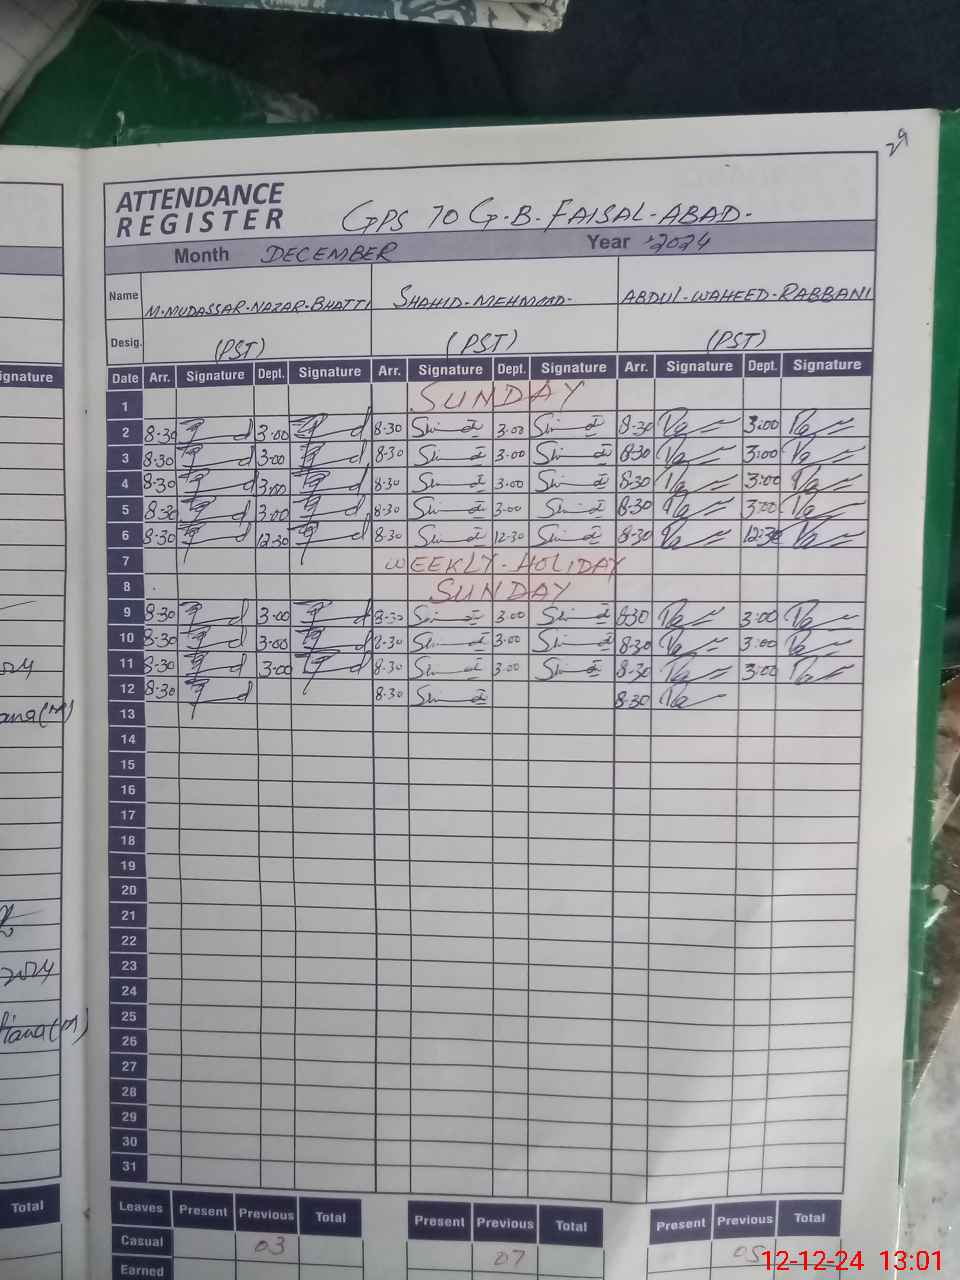 29
ATTENDANCE
REGISTER GPS 70 G.B. FAISAL-ABAD.
Month DECEMBER Year 2024
Name M. MUDASSAR-NAZAR-BHATTI SHAHID-MEHMOOD- ABDUL-WAHEED-RABBANI
Desig. (PST) (PST) (PST)
ignature Date Arr. Signature Dept. Signature Arr. Signature Dept. Signature Arr. Signature Dept. Signature
1 SUNDAY
2 8-30 3-00 8-30 3-00 8-30 3:00
3 8-30 3-00 8-30 3-00 8-30 3:00
4 8-30 3-00 8-30 3-00 8-30 3:00
5 8-30 3-00 8-30 3-00 8-30 3:00
6 8-30 12-30 8-30 12-30 8-30 12-30
7 WEEKLY-HOLIDAY
8 SUNDAY
9 8-30 3-00 8-30 3-00 8-30 3:00
10 8-30 3-00 8-30 3-00 8-30 3:00
11 8-30 3-00 8-30 3-00 8-30 3:00
12 8-30 8-30 8-30
13
14
15
16
17
18
19
20
21
22
23
24
2024
25
26
27
28
29
30
31
Total Leaves Present Previous Total Present Previous Total Present Previous Total
Casual 03 07 05
Earned
12-12-24 13:01